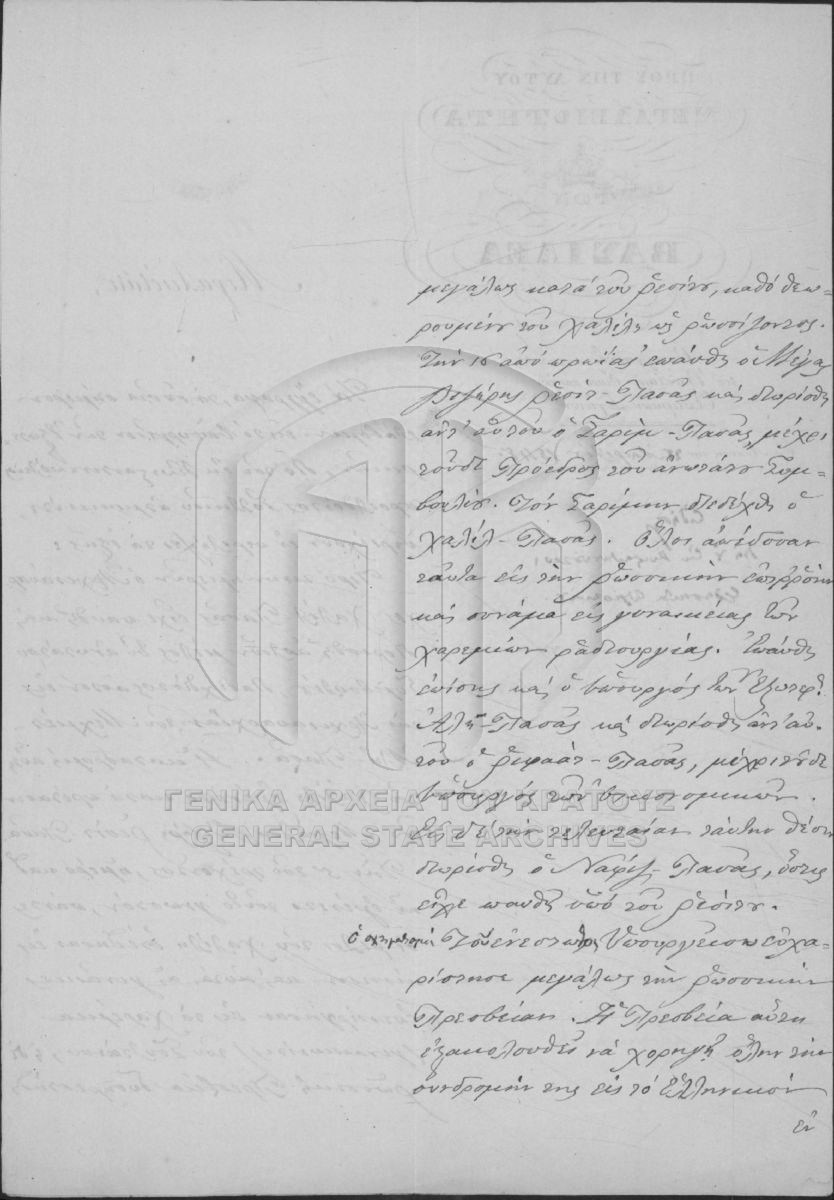 μεγάλως κατά του Ρεσίτου, καθό θεω-
ρουμένου του Χαλίλη ως ρωσσίζοντος.
Την 16 από πρωΐας επαύθη ο Μέγας
Βεζύρης Ρεσίτ-Πασάς και διωρίσθη
αντ' αυτού ο Σαρίμ-Πασάς, μέχρι
τούδε Πρόεδρος του ανωτάτου Συμ-
βουλίου. Τον Σαρίμην διεδέχθη ο
Χαλίλ-Πασάς. Όλοι απέδοσαν
ταύτα εις την ρωσσικήν επιρροήν
και συνάμα εις γυναικείας των
χαρεμίων ραδιουργίας. Επαύθη
επίσης και ο υπουργός των Εξωτερ.
Αλή-Πασάς και διωρίσθη αντ' αυ-
του ο Ριφαάτ-Πασάς, μέχρι τούδε
υπουργός των οικονομικών.
Εις δε την τελευταίαν ταύτην θέσιν
διωρίσθη ο Ναφίζ-Πασάς, όστις
είχε παυθή υπό του Ρεσίτου.
ο σχηματισμός Του ενεστώτος Υπουργείου ευχα-
ρίστησε μεγάλως την ρωσσικήν
Πρεσβείαν. Η Πρεσβεία αύτη
εξακολουθεί να χορηγή όλην την
συνδρομήν της εις το Ελληνικόν
εν
ΓΕΝΙΚΑ ΑΡΧΕΙΑ ΤΟΥ ΚΡΑΤΟΥΣ
GENERAL STATE ARCHIVES